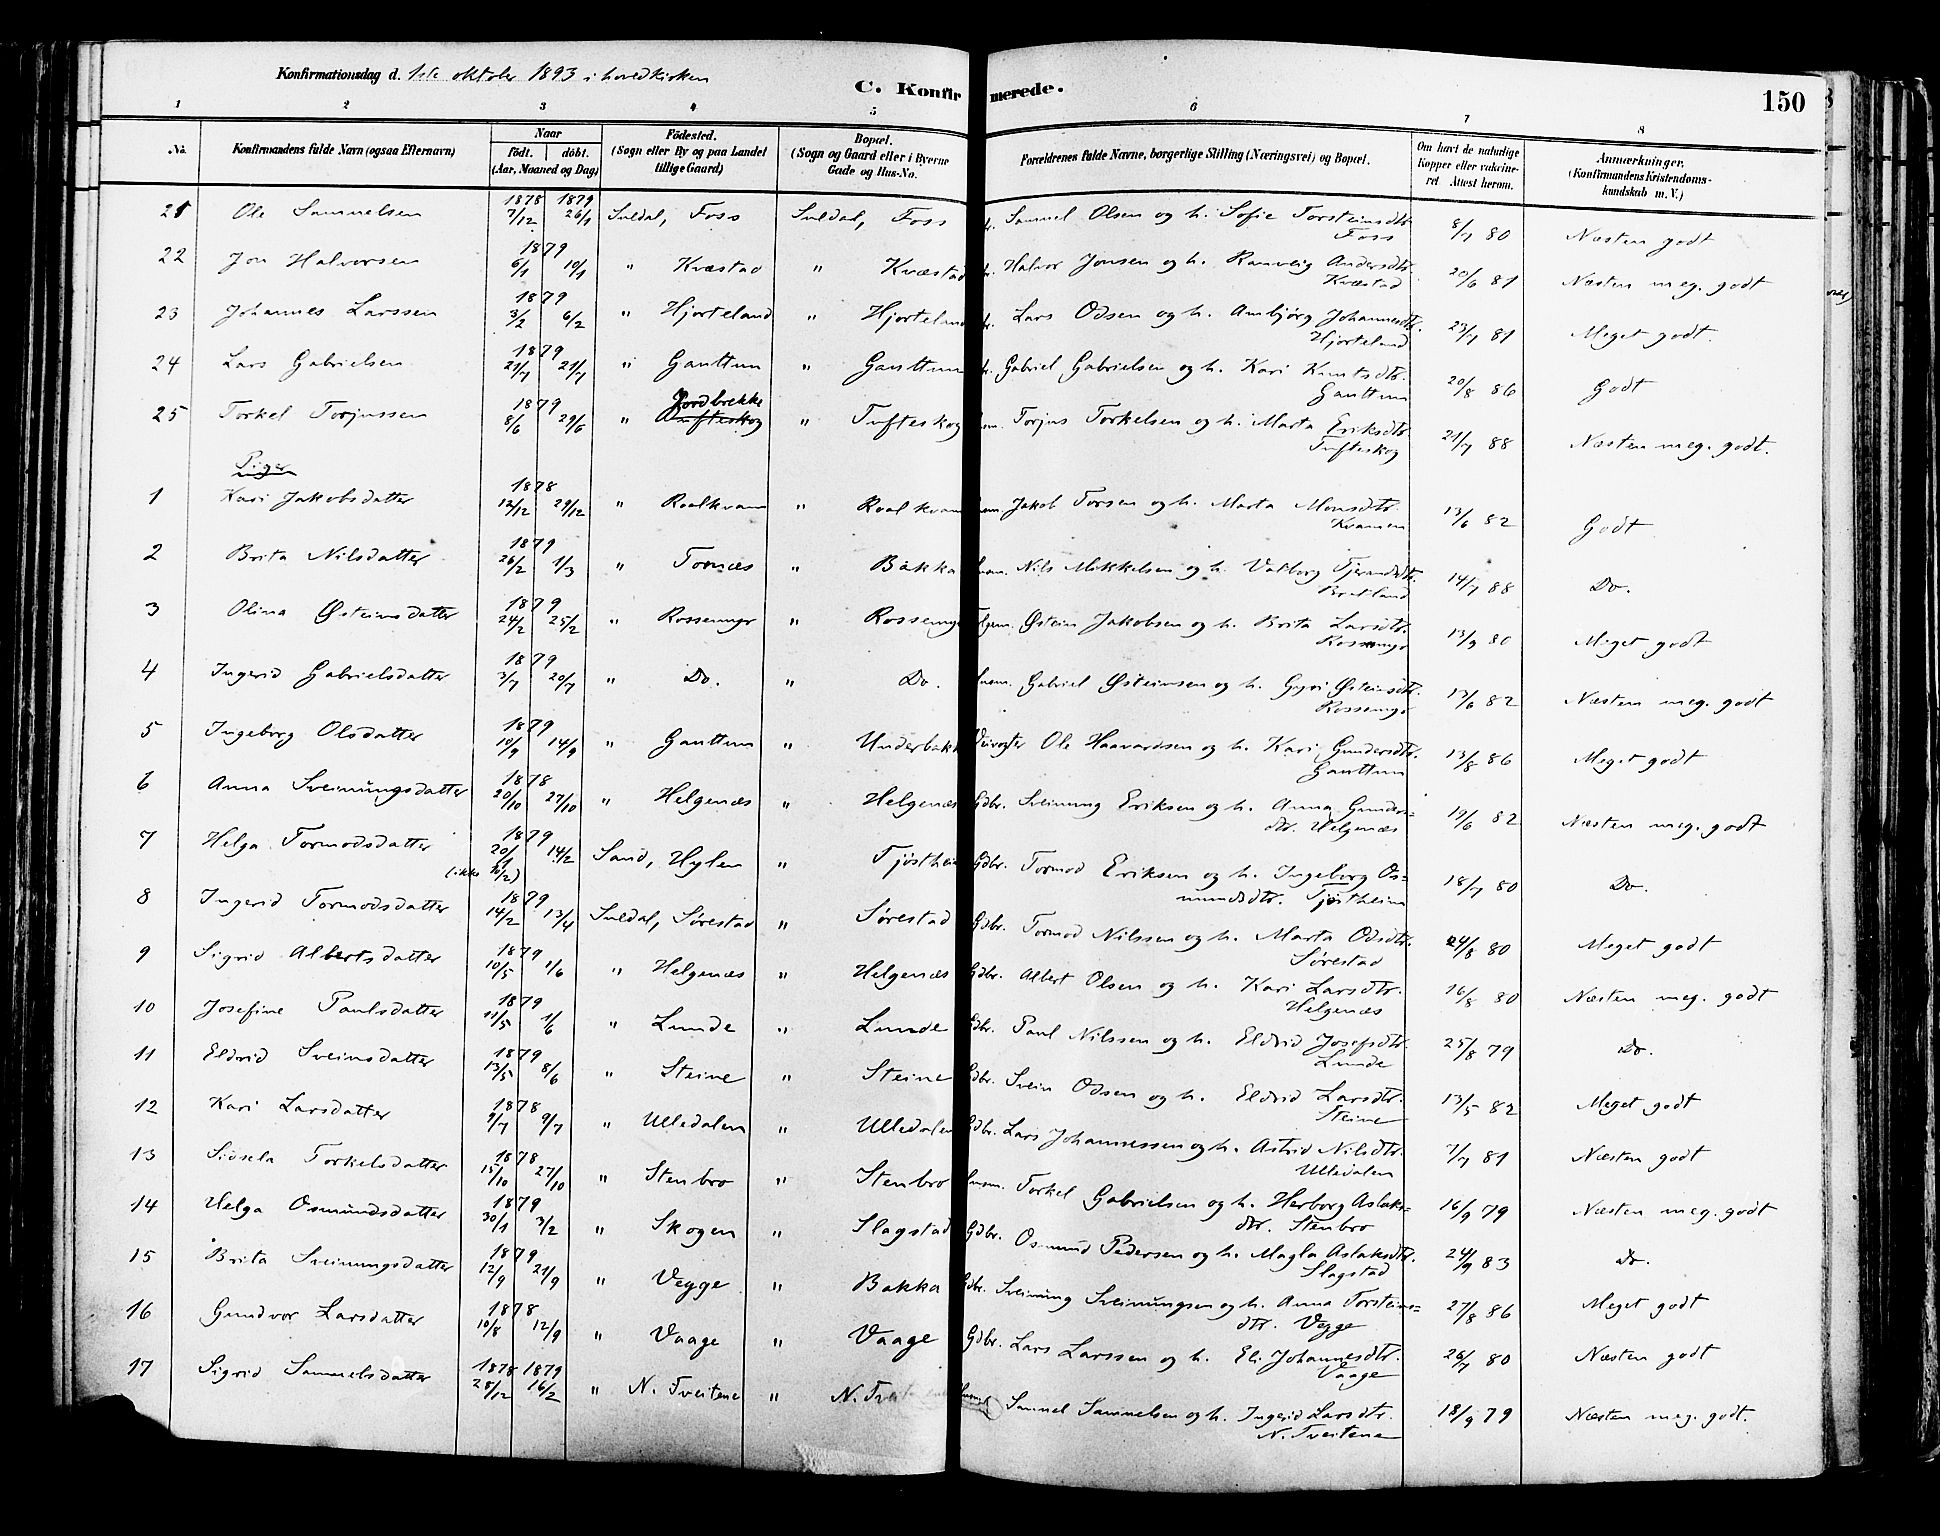 Konfirmationsdag d. 1ste oktober 1893 i hovedkirken
C. Konfirmerede.
150
1 2 3 4 5 6 7 8
No. Konfirmandens fulde Navn (ogsaa Efternavn) Naar födt. döbt. (Aar, Maaned og Dag) Födested. (Sogn eller By og paa Landet tillige Gaard) Bopæl. (Sogn og Gaard eller i Byerne Gade og Hus-No. Forældrenes fulde Navne, borgerlige Stilling (Næringsvei) og Bopæl. Om havt de naturlige Kopper eller vakcineret Attest herom. Anmærkninger. (Konfirmandens Kristendomskundskab m. V.)
21 Ole Samuelsen 1878 7/12 1879 26/1 Suldal, Foss Suldal, Foss Samuel Olsen og h. Sofie Torsteinsdtr. Foss 8/7 80 Næsten godt
22 Jon Halvorsen 1879 6/1 10/1 " Kvæstad " Kvæstad Halvor Jonsen og h. Ranveig Andersdtr. Kvæstad 20/6 81 Næsten meg. godt
23 Johannes Larssen 1879 3/2 6/2 " Hjorteland " Hjorteland Lars Odsen og h. Anbjørg Johannesdtr. Hjorteland 23/7 81 Meget godt.
24 Lars Gabrielsen 1879 21/7 21/7 " Gauttun " Gauttun Gabriel Gabrielsen og h. Kari Knutsdtr. Gauttun 20/8 86 Godt
25 Torkel Torjussen 1879 8/6 29/6 " Jordbrekke Tufteskog " Tufteskog Torjus Torkelsen og h. Marta Eriksdtr. Tufteskog 21/7 88 Næsten meg. godt.
Piger
1 Kari Jakobsdatter 1878 12/12 29/12 " Roalkvam " Roalkvam Jakob Torsen og h. Marta Monsdtr. Kvamen 13/6 82 Godt
2 Brita Nilsdatter 1879 26/2 1/3 " Tornæs " Bakka Nils Mikkelsen og h. Valborg Bratland 14/7 88 Do.
3 Olina Østeinsdatter 1879 24/2 25/2 " Rossemyr " Rossemyr Østein Jakobsen og h. Brita Larsdtr. Rossemyr 13/9 80 Meget godt
4 Ingerid Gabrielsdatter 1879 3/7 20/7 " Do. " Do. Gabriel Østeinsen og h. Gyri Østeinsdtr. Rossemyr 13/6 82 Næsten meg. godt
5 Ingeborg Olsdatter 1879 10/9 14/9 " Gauttun " Underbakk Ole Haavardsen og h. Kari Gundersdtr. Gauttun 13/8 86 Meget godt
6 Anna Sveinungsdatter 1878 20/10 27/10 " Helgenæs " Helgenæs Gdbr. Sveinung Eriksen og h. Anna Gundersdtr. Helgenæs 19/6 82 Næsten meg. godt
7 Helga Tormodsdatter 1879 20/1 14/2 Sand, Hylen " Tjøstheim Gdbr. Tormod Eriksen og h. Ingeborg Osmundsdtr. Tjøstheim 18/7 80 Do.
8 Ingerid Tormodsdatter 1879 14/2 13/4 Suldal, Sørestad " Sørestad Gdbr. Tormod Nilssen og h. Marta Odsdtr. Sørestad 24/8 80 Meget godt
9 Sigrid Albertsdatter 1879 10/5 1/6 " Helgenæs " Helgenæs Gdbr. Albert Olsen og h. Kari Larsdtr. Helgenæs 16/8 80 Næsten meg. godt
10 Josefine Paulsdatter 1879 11/5 1/6 " Lunde " Lunde Gdbr. Paul Nilssen og h. Eldrid Josefsdtr. Lunde 25/8 79 Do.
11 Eldrid Sveinsdatter 1879 13/5 8/6 " Steine " Steine Gdbr. Svein Odsen og h. Eldrid Larsdtr. Steine 13/5 82 Meget godt
12 Kari Larsdatter 1878 9/7 " Ulledalen " Ulledalen Gdbr. Lars Johannessen og h. Astrid Nilsdtr. Ulledalen 7/7 81 Næsten godt
13 Sidsela Torkelsdatter 1878 15/10 27/10 " Stenbro " Stenbro Torkel Gabrielsen og h. Herborg Aslaksdtr. Stenbro 16/9 79 Næsten meg. godt
14 Helga Osmundsdatter 1879 30/1 3/2 " Skogen " Slagstad Gdbr. Osmund Pedersen og h. Magla Aslaksdtr. Slagstad 24/9 83 Do.
15 Brita Sveinungsdatter 1879 12/9 21/9 " Vegge " Bakka Gdbr. Sveinung Sveinungsen og h. Anna Torsteinsdtr. Vegge 27/8 86 Meget godt
16 Gundvor Larsdatter 1878 10/8 12/9 " Vaage " Vaage Gdbr. Lars Larssen og h. Eli Johannesdtr. Vaage 26/7 80 Næsten godt
17 Sigrid Samuelsdatter 1878 28/12 1879 16/2 " N. Tveitene " N. Samuel Samuelsen og h. Ingerid Larsdtr. N. Tveitene 18/9 79 Næsten meg. godt.